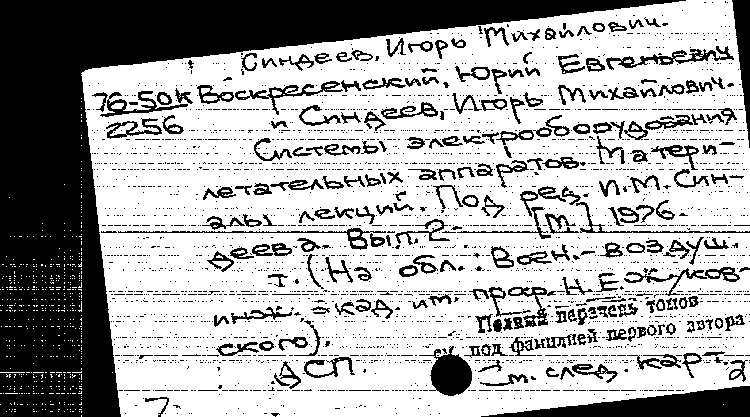 Синдеев, Игорь Михайлович.
76-50к Воскресенский, Юрий Евгеньевич
2256 и Синдеев, Игорь Михайлович.
Системы электрооборудования
летательных аппаратов. Матери-
алы лекций. Под ред. И.М. Син-
деева. Вып. 2-
[М.], 1976.
т. (На обл.: Воен.-воздуш.
инж. акад. им. проф. Н.Е. Жуков-
ского).
Полный перечень томов
см. под фамилией первого автора
ДСП.
См. след. карт.
2